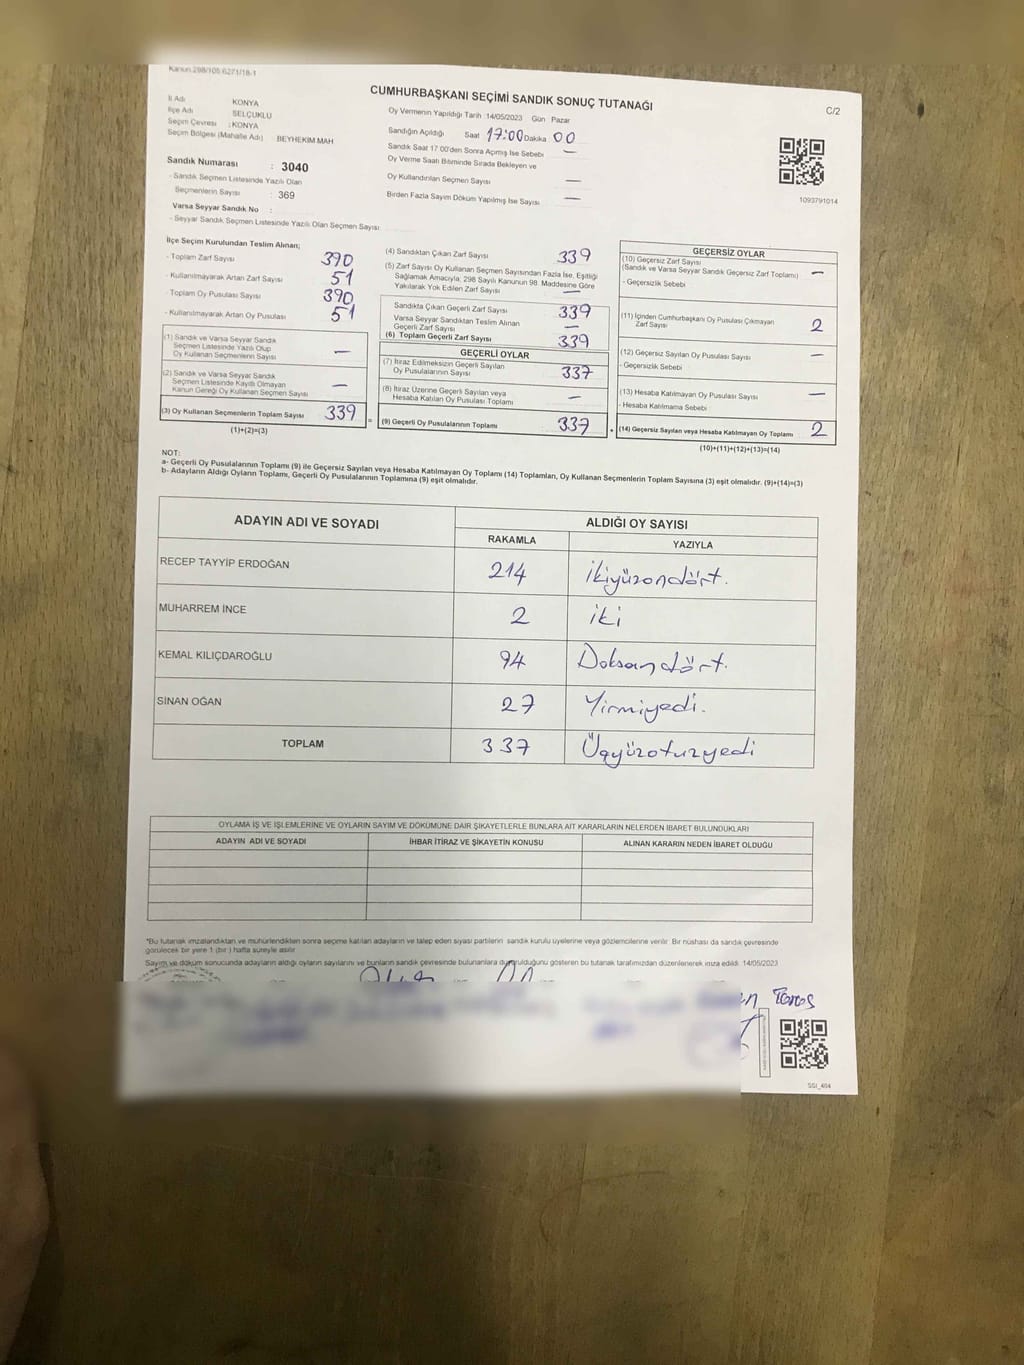 Kanun:298/105:6271/18-1
CUMHURBAŞKANI SEÇİMİ SANDIK SONUÇ TUTANAĞI
C/2
İl Adı : KONYA
İlçe Adı : SELÇUKLU
Seçim Çevresi : KONYA
Seçim Bölgesi (Mahalle Adı) : BEYHEKİM MAH
Sandık Numarası : 3040
- Sandık Seçmen Listesinde Yazılı Olan
Seçmenlerin Sayısı : 369
Varsa Seyyar Sandık No :
- Seyyar Sandık Seçmen Listesinde Yazılı Olan Seçmen Sayısı:
Oy Vermenin Yapıldığı Tarih :14/05/2023 Gün Pazar
Sandığın Açıldığı Saat 17:00 Dakika 00
Sandık Saat 17:00'den Sonra Açılmış İse Sebebi —
Oy Verme Saati Bitiminde Sırada Bekleyen ve
Oy Kullandırılan Seçmen Sayısı —
Birden Fazla Sayım Döküm Yapılmış İse Sayısı —
1093791014
İlçe Seçim Kurulundan Teslim Alınan;
- Toplam Zarf Sayısı 390
- Kullanılmayarak Artan Zarf Sayısı 51
- Toplam Oy Pusulası Sayısı 390
- Kullanılmayarak Artan Oy Pusulası 51
(1) Sandık ve Varsa Seyyar Sandık
Seçmen Listesinde Yazılı Olup
Oy Kullanan Seçmenlerin Sayısı —
(2) Sandık ve Varsa Seyyar Sandık
Seçmen Listesinde Kayıtlı Olmayan
Kanun Gereği Oy Kullanan Seçmen Sayısı —
(3) Oy Kullanan Seçmenlerin Toplam Sayısı 339
(1)+(2)=(3)
(4) Sandıktan Çıkan Zarf Sayısı 339
(5) Zarf Sayısı Oy Kullanan Seçmen Sayısından Fazla İse, Eşitliği
Sağlamak Amacıyla; 298 Sayılı Kanunun 98. Maddesine Göre
Yakılarak Yok Edilen Zarf Sayısı —
Sandıkta Çıkan Geçerli Zarf Sayısı 339
Varsa Seyyar Sandıktan Teslim Alınan
Geçerli Zarf Sayısı —
(6) Toplam Geçerli Zarf Sayısı 339
GEÇERLİ OYLAR
(7) İtiraz Edilmeksizin Geçerli Sayılan
Oy Pusulalarının Sayısı 337
(8) İtiraz Üzerine Geçerli Sayılan veya
Hesaba Katılan Oy Pusulası Toplamı —
= (9) Geçerli Oy Pusulalarının Toplamı 337
GEÇERSİZ OYLAR
(10) Geçersiz Zarf Sayısı
(Sandık ve Varsa Seyyar Sandık Geçersiz Zarf Toplamı) —
- Geçersizlik Sebebi
(11) İçinden Cumhurbaşkanı Oy Pusulası Çıkmayan
Zarf Sayısı 2
(12) Geçersiz Sayılan Oy Pusulası Sayısı —
- Geçersizlik Sebebi
(13) Hesaba Katılmayan Oy Pusulası Sayısı —
- Hesaba Katılmama Sebebi
+ (14) Geçersiz Sayılan veya Hesaba Katılmayan Oy Toplamı 2
(10)+(11)+(12)+(13)=(14)
NOT:
a- Geçerli Oy Pusulalarının Toplamı (9) ile Geçersiz Sayılan veya Hesaba Katılmayan Oy Toplamı (14) Toplamları, Oy Kullanan Seçmenlerin Toplam Sayısına (3) eşit olmalıdır. (9)+(14)=(3)
b- Adayların Aldığı Oyların Toplamı, Geçerli Oy Pusulalarının Toplamına (9) eşit olmalıdır.
ADAYIN ADI VE SOYADI ALDIĞI OY SAYISI
RAKAMLA YAZIYLA
RECEP TAYYİP ERDOĞAN 214 İkiyüzondört.
MUHARREM İNCE 2 iki
KEMAL KILIÇDAROĞLU 94 Doksandört.
SİNAN OĞAN 27 Yirmiyedi.
TOPLAM 337 Üçyüzotuzyedi
OYLAMA İŞ VE İŞLEMLERİNE VE OYLARIN SAYIM VE DÖKÜMÜNE DAİR ŞİKAYETLERLE BUNLARA AİT KARARLARIN NELERDEN İBARET BULUNDUKLARI
ADAYIN ADI VE SOYADI İHBAR İTİRAZ VE ŞİKAYETİN KONUSU ALINAN KARARIN NEDEN İBARET OLDUĞU
*Bu tutanak imzalandıktan ve mühürlendikten sonra seçime katılan adayların ve talep eden siyasi partilerin sandık kurulu üyelerine veya gözlemcilerine verilir. Bir nüshası da sandık çevresinde
görülecek bir yere 1 (bir) hafta süreyle asılır.
Sayım ve döküm sonucunda adayların aldığı oyların sayılarını ve bunların sandık çevresinde bulunanlara duyurulduğunu gösteren bu tutanak tarafımızdan düzenlenerek imza edildi. 14/05/2023
Toros